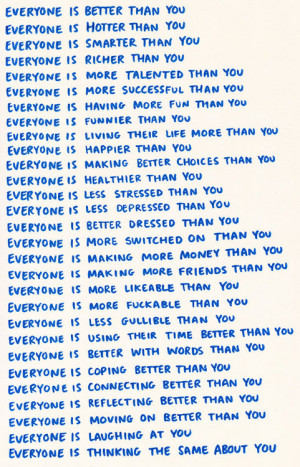 EVERYONE IS BETTER THAN YOU
EVERYONE IS HOTTER THAN YOU
EVERYONE IS SMARTER THAN YOU
EVERYONE IS RICHER THAN YOU
EVERYONE IS MORE TALENTED THAN YOU
EVERYONE IS MORE SUCCESSFUL THAN YOU
EVERYONE IS HAVING MORE FUN THAN YOU
EVERYONE IS FUNNIER THAN YOU
EVERYONE IS LIVING THEIR LIFE MORE THAN YOU
EVERYONE IS HAPPIER THAN YOU
EVERYONE IS MAKING BETTER CHOICES THAN YOU
EVERYONE IS HEALTHIER THAN YOU
EVERYONE IS LESS STRESSED THAN YOU
EVERYONE IS LESS DEPRESSED THAN YOU
EVERYONE IS BETTER DRESSED THAN YOU
EVERYONE IS MORE SWITCHED ON THAN YOU
EVERYONE IS MAKING MORE MONEY THAN YOU
EVERYONE IS MAKING MORE FRIENDS THAN YOU
EVERYONE IS MORE LIKEABLE THAN YOU
EVERYONE IS MORE FUCKABLE THAN YOU
EVERYONE IS LESS GULLIBLE THAN YOU
EVERYONE IS USING THEIR TIME BETTER THAN YOU
EVERYONE IS BETTER WITH WORDS THAN YOU
EVERYONE IS COPING BETTER THAN YOU
EVERYONE IS CONNECTING BETTER THAN YOU
EVERYONE IS REFLECTING BETTER THAN YOU
EVERYONE IS MOVING ON BETTER THAN YOU
EVERYONE IS LAUGHING AT YOU
EVERYONE IS THINKING THE SAME ABOUT YOU